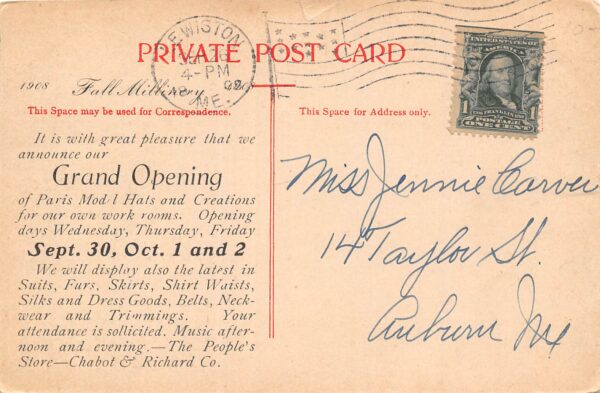 LEWISTON
4-PM
ME.
PRIVATE POST CARD
1908 Fall Millinery
This Space may be used for Correspondence.
This Space for Address only.
It is with great pleasure that we
announce our
Grand Opening
of Paris Mod l Hats and Creations
for our own work rooms. Opening
days Wednesday, Thursday, Friday
Sept. 30, Oct. 1 and 2
We will display also the latest in
Suits, Furs, Skirts, Shirt Waists,
Silks and Dress Goods, Belts, Neck-
wear and Trimmings. Your
attendance is sollicited. Music after-
noon and evening.—The People's
Store—Chabot & Richard Co.
UNITED STATES OF
AMERICA
FRANKLIN
1 POSTAGE 1
ONE CENT
Miss Jennie Carver
14 Taylor St.
Auburn Me